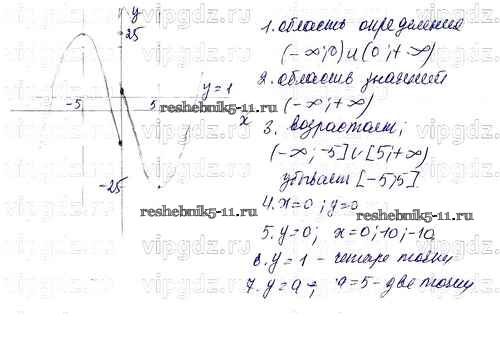 y
25
-5
5
y=1
x
-25
1. область определения
(-∞;0)и(0;+∞)
2. область значений
(-∞;+∞)
3. возрастает;
(-∞;-5]∪[5;+∞)
убывает [-5;5]
4. x=0; y=0
5. y=0; x=0;10;-10
6. y=1 - четыре точки
7. y=a; a=5 - две точки
reshebnik5-11.ru
reshebnik5-11.ru
reshebnik5-11.ru
vipgdz.ru